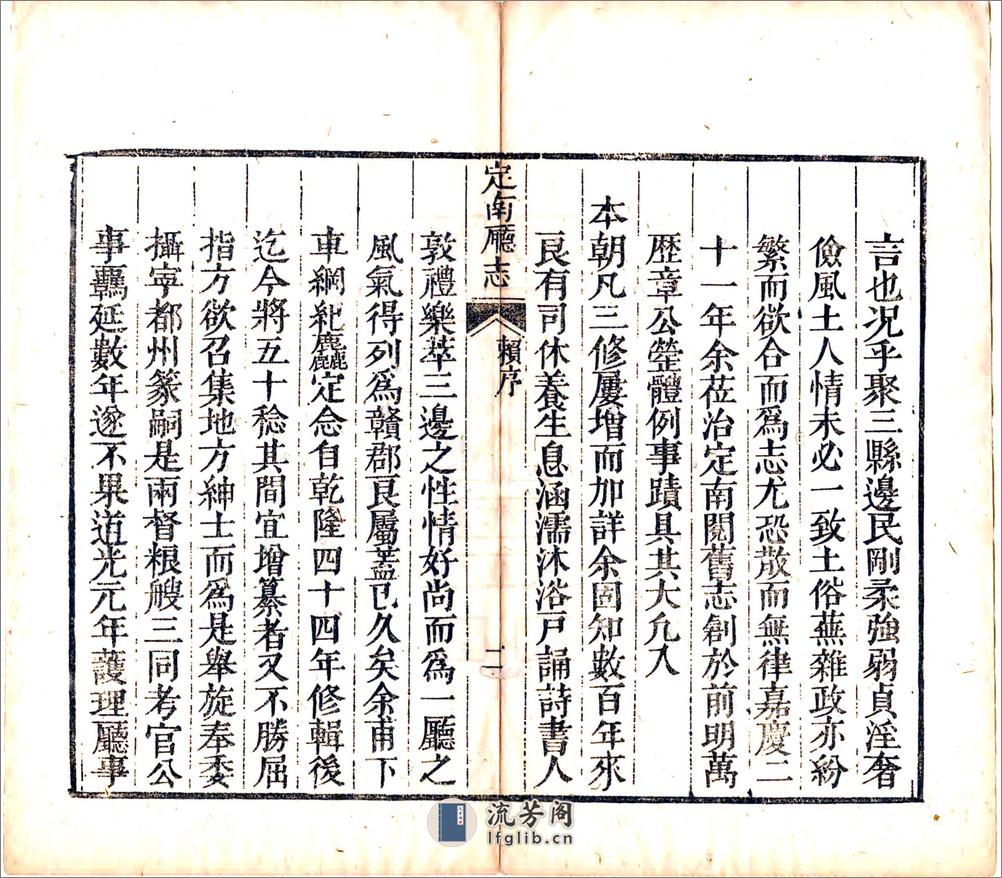 言也況乎聚三縣邊民剛柔強弱貞淫奢
儉風土人情未必一致土俗蕪雜政亦紛
繁而欲合而爲志尤恐散而無律嘉慶二
十一年余莅治定南閱舊志創於前明萬
歷章公瑩體例事蹟具其大凡入
本朝凡三修屢增而加詳余固知數百年來
良有司休養生息涵濡沐浴戸誦詩書人
定南廳志
賴序
二
敦禮樂萃三邊之性情好尚而爲一廳之
風氣得列爲贛郡良屬蓋已久矣余甫下
車綱紀麤定念自乾隆四十四年修輯後
迄今將五十稔其間宜增纂者又不勝屈
指方欲召集地方紳士而爲是舉旋奉委
攝寧都州篆嗣是兩督粮艘三同考官公
事羈延數年遂不果道光元年護理廳事
流芳阁
lfglib.cn